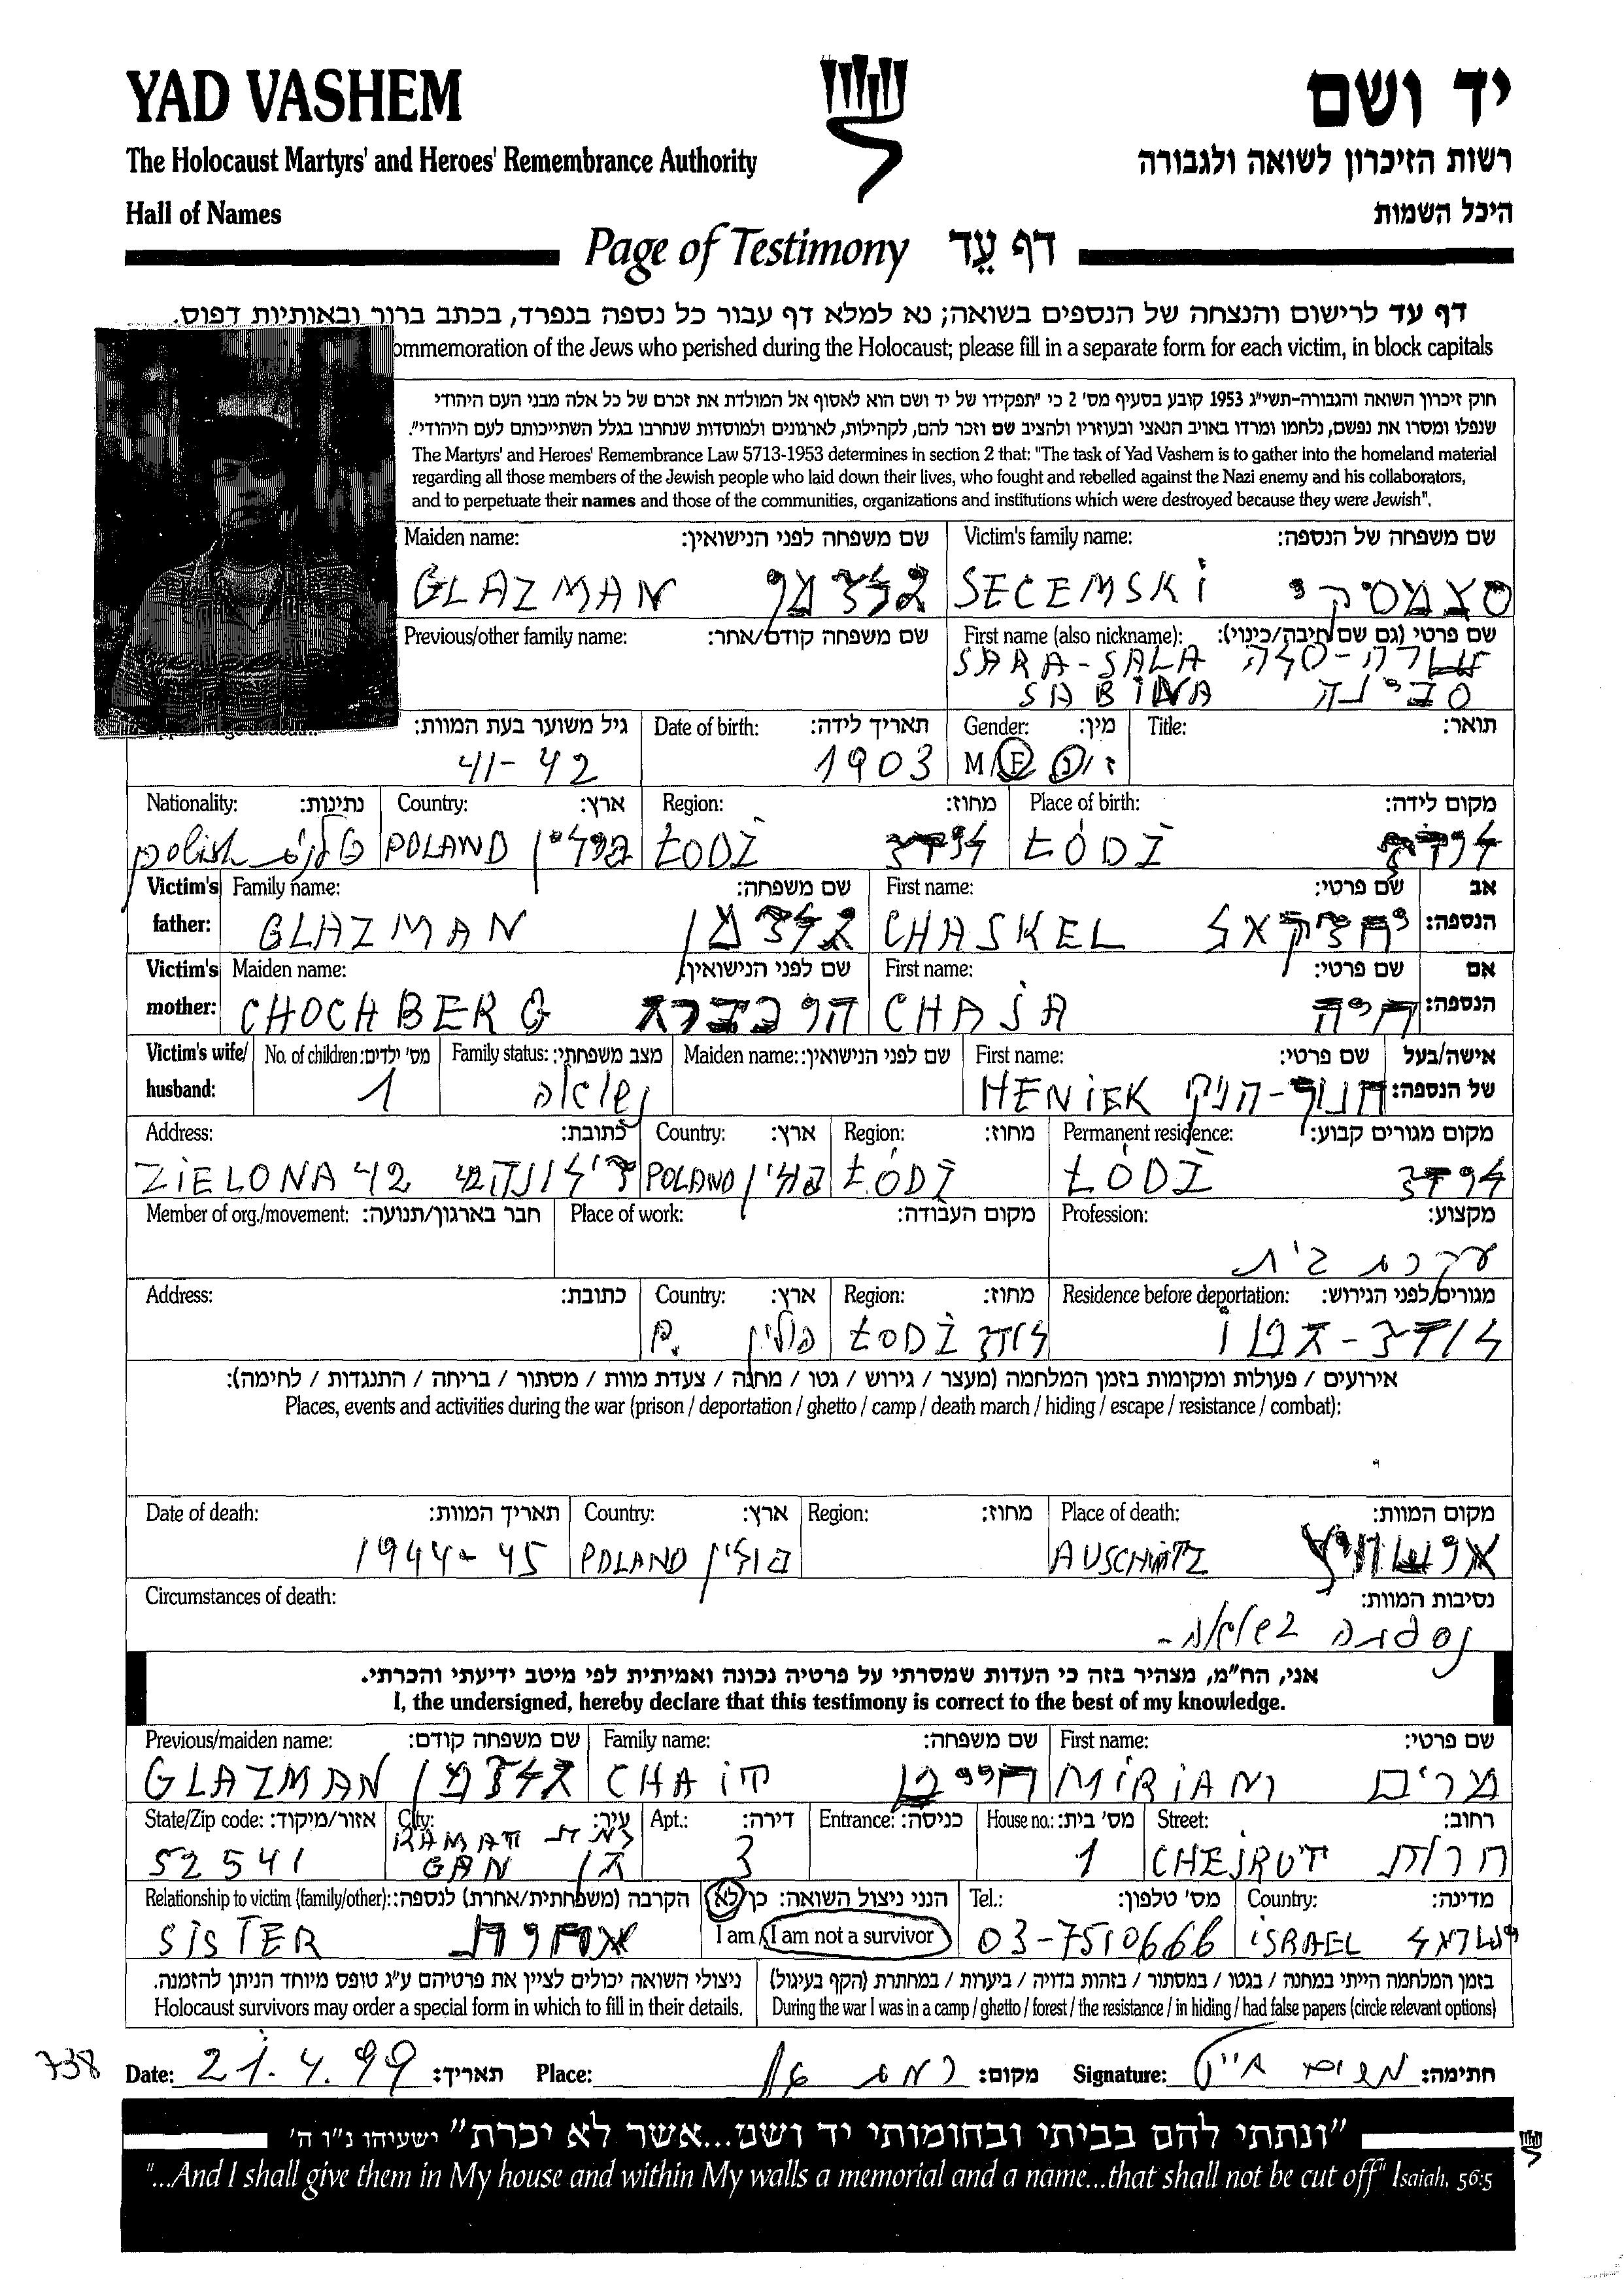 YAD VASHEM
יד ושם
The Holocaust Martyrs' and Heroes' Remembrance Authority
רשות הזיכרון לשואה ולגבורה
Hall of Names
היכל השמות
Page of Testimony דף עֵד
דף עד לרישום והנצחה של הנספים בשואה; נא למלא דף עבור כל נספה בנפרד, בכתב ברור ובאותיות דפוס.
ommemoration of the Jews who perished during the Holocaust; please fill in a separate form for each victim, in block capitals
חוק זיכרון השואה והגבורה-תשי״ג 1953 קובע בסעיף מס' 2 כי ״תפקידו של יד ושם הוא לאסוף אל המולדת את זכרם של כל אלה מבני העם היהודי
שנפלו ומסרו את נפשם, נלחמו ומרדו באויב הנאצי ובעוזריו ולהציב שם וזכר להם, לקהילות, לארגונים ולמוסדות שנחרבו בגלל השתייכותם לעם היהודי״.
The Martyrs' and Heroes' Remembrance Law 5713-1953 determines in section 2 that: "The task of Yad Vashem is to gather into the homeland material
regarding all those members of the Jewish people who laid down their lives, who fought and rebelled against the Nazi enemy and his collaborators,
and to perpetuate their names and those of the communities, organizations and institutions which were destroyed because they were Jewish".
Maiden name: שם משפחה לפני הנישואין: Victim's family name: שם משפחה של הנספה:
GLAZMAN גלזמן SECEMSKI סצמסקי
Previous/other family name: שם משפחה קודם/אחר: First name (also nickname): שם פרטי (גם שם חיבה/כינוי):
SARA-SALA שרה-סלה
SABINA סבינה
גיל משוער בעת המוות: Date of birth: תאריך לידה: Gender: מין: Title: תואר:
41-42 1903 M/F ז/נ
Nationality: נתינות: Country: ארץ: Region: מחוז: Place of birth: מקום לידה:
polish POLAND פולין ŁODŻ לודז ŁÓDŻ לודז
Victim's father: Family name: שם משפחה: First name: שם פרטי: אב הנספה:
GLAZMAN גלזמן CHASKEL יחזקאל
Victim's mother: Maiden name: שם לפני הנישואין: First name: שם פרטי: אם הנספה:
CHOCHBERG הוכברג CHAJA חיה
Victim's wife/husband: No. of children: מס' ילדים: Family status: מצב משפחתי: Maiden name: שם לפני הנישואין: First name: שם פרטי: אישה/בעל של הנספה:
1 נשואה HENIEK חנוך-הניק
Address: כתובת: Country: ארץ: Region: מחוז: Permanent residence: מקום מגורים קבוע:
ZIELONA 42 זילונה 42 POLAND פולין ŁÓDŻ ŁÓDŻ לודז
Member of org./movement: חבר בארגון/תנועה: Place of work: מקום העבודה: Profession: מקצוע:
עקרת בית
Address: כתובת: Country: ארץ: Region: מחוז: Residence before deportation: מגורים לפני הגירוש:
P. פולין ŁODŻ לודז לודז-גטו
אירועים / פעולות ומקומות בזמן המלחמה (מעצר / גירוש / גטו / מחנה / צעדת מוות / מסתור / בריחה / התנגדות / לחימה):
Places, events and activities during the war (prison / deportation / ghetto / camp / death march / hiding / escape / resistance / combat):
Date of death: תאריך המוות: Country: ארץ: Region: מחוז: Place of death: מקום המוות:
1944-45 POLAND פולין AUSCHWITZ אושוויץ
Circumstances of death: נסיבות המוות:
נספתה בשואה-
אני, הח״מ, מצהיר בזה כי העדות שמסרתי על פרטיה נכונה ואמיתית לפי מיטב ידיעתי והכרתי.
I, the undersigned, hereby declare that this testimony is correct to the best of my knowledge.
Previous/maiden name: שם משפחה קודם: Family name: שם משפחה: First name: שם פרטי:
GLAZMAN גלזמן CHAIT MIRIAM מרים
State/Zip code: אזור/מיקוד: City: עיר: Apt.: דירה: Entrance: כניסה: House no.: מס' בית: Street: רחוב:
52541 RAMAT GAN רמת גן 3 1 CHEJRUT חרות
Relationship to victim (family/other): הקרבה (משפחתית/אחרת) לנספה: הנני ניצול השואה: כן/לא Tel.: מס' טלפון: Country: מדינה:
SISTER אחות I am/I am not a survivor 03-7510666 ISRAEL ישראל
ניצולי השואה יכולים לציין את פרטיהם ע״ג טופס מיוחד הניתן להזמנה. בזמן המלחמה הייתי במחנה / בגטו / במסתור / בזהות בדויה / ביערות / במחתרת (הקף בעיגול)
Holocaust survivors may order a special form in which to fill in their details. During the war I was in a camp / ghetto / forest / the resistance / in hiding / had false papers (circle relevant options)
738 Date: 21.4.99 תאריך: Place: רמת גן מקום: Signature: מרים חייט חתימה:
״ונתתי להם בביתי ובחומותי יד ושם...אשר לא יכרת״ ישעיהו נ״ו ה'
"...And I shall give them in My house and within My walls a memorial and a name...that shall not be cut off" Isaiah, 56:5